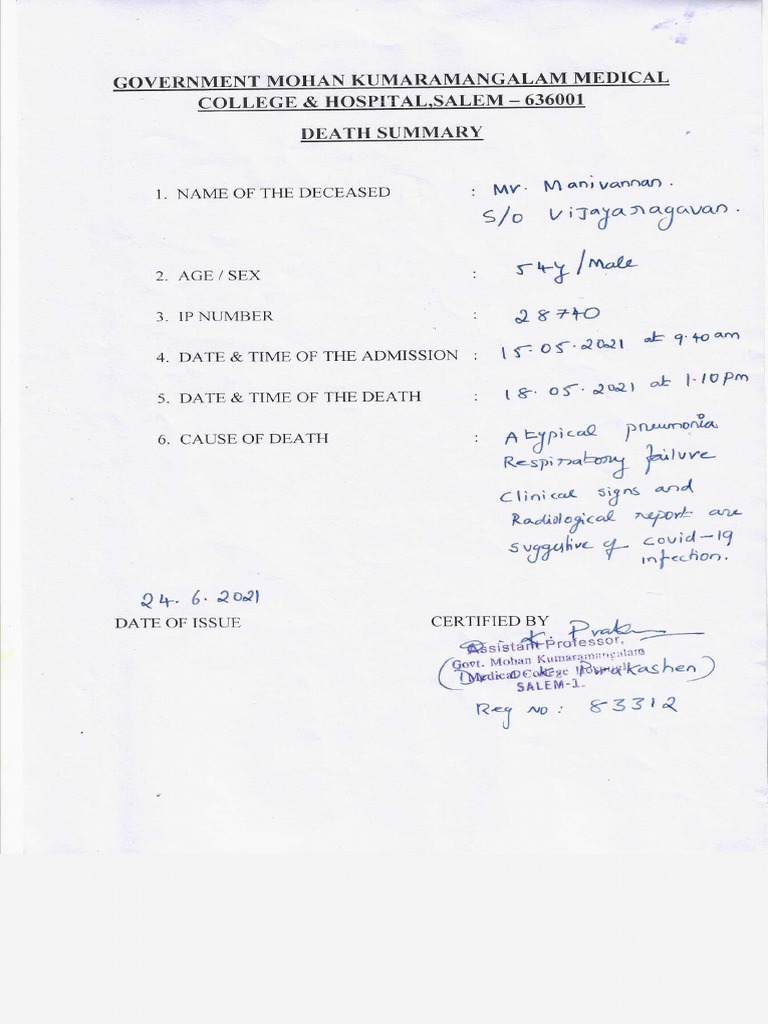 GOVERNMENT MOHAN KUMARAMANGALAM MEDICAL
COLLEGE & HOSPITAL,SALEM – 636001
DEATH SUMMARY
1. NAME OF THE DECEASED : Mr. Manivannan.
S/o Vijayaragavan.
2. AGE / SEX : 54y/Male
3. IP NUMBER : 28740
4. DATE & TIME OF THE ADMISSION : 15.05.2021 at 9.40am
5. DATE & TIME OF THE DEATH : 18.05.2021 at 1.10pm
6. CAUSE OF DEATH : Atypical pneumonia
Respiratory failure
Clinical signs and
Radiological report are
suggestive of covid-19
infection.
24.6.2021
DATE OF ISSUE
CERTIFIED BY
Assistant Professor,
Govt. Mohan Kumaramangalam
Medical College Hospital
(Dr. Prakashen)
SALEM-1.
Reg No: 83312